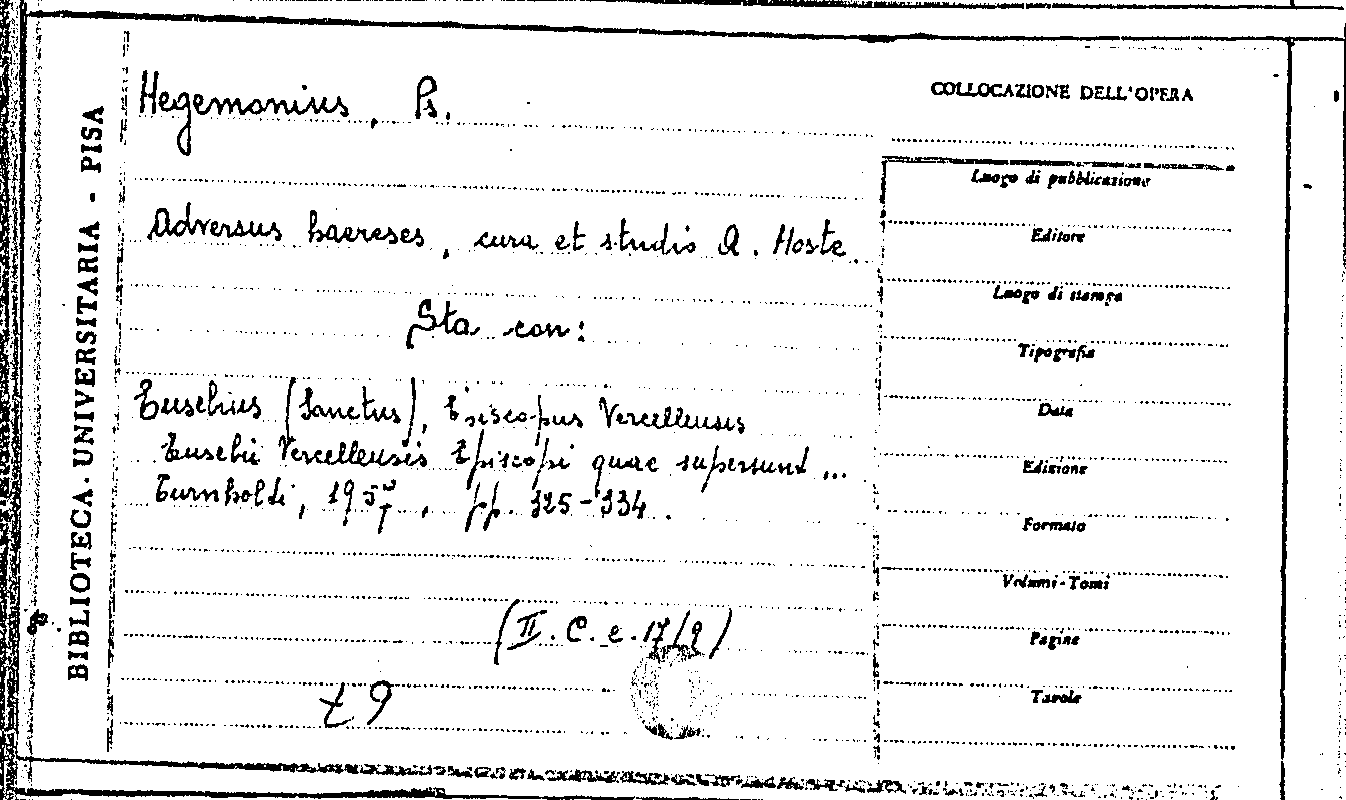 Hegemonius, Ps.
Adversus haereses, cura et studio A. Hoste.
Sta con:
Eusebius (Sanctus), Episcopus Vercellensis
Eusebii Vercellensis Episcopi quae supersunt ...
Turnholti, 1957, pp. 325-334.
(II. C. e. 17/9)
t9
BIBLIOTECA UNIVERSITARIA - PISA
COLLOCAZIONE DELL'OPERA
Luogo di pubblicazione
Editore
Luogo di stampa
Tipografia
Data
Edizione
Formato
Volumi-Tomi
Pagine
Tavole